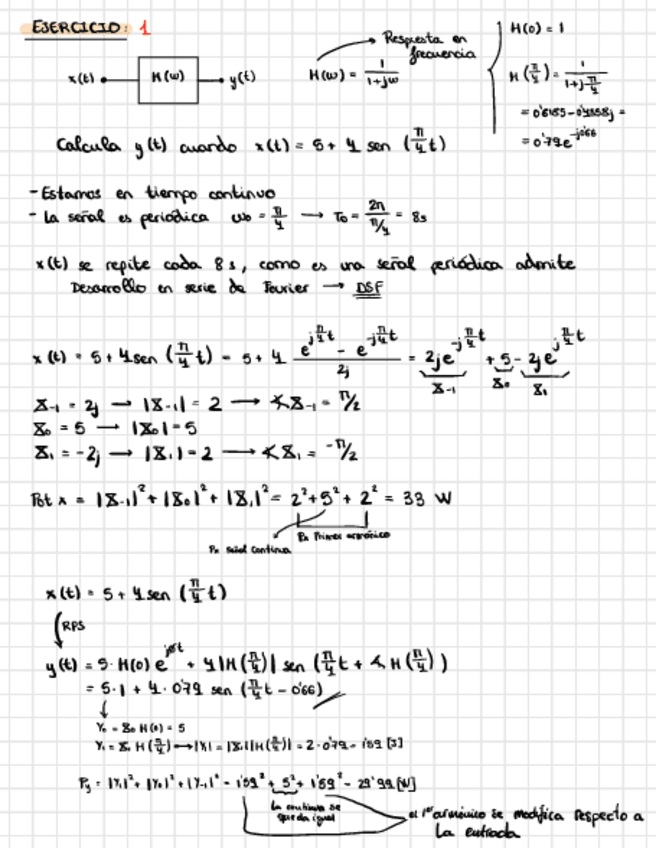 EJERCICIO: 1
x(t) H(ω) y(t)
H(ω) = 1/(1+jω)
Respuesta en frecuencia
H(0) = 1
H(π/4) = 1/(1+j π/4)
= 0'6185 - 0'4858j =
= 0'79e^(-j0'66)
Calcula y(t) cuando x(t) = 5 + 4 sen (π/4 t)
- Estamos en tiempo continuo
- La señal es periódica ω₀ = π/4 → T₀ = 2π/(π/4) = 8s
x(t) se repite cada 8s, como es una señal periódica admite
Desarrollo en serie de Fourier → DSF
x(t) = 5 + 4 sen (π/4 t) = 5 + 4 (e^(jπ/4 t) - e^(-jπ/4 t))/2j = 2je^(-jπ/4 t) + 5 - 2je^(jπ/4 t)
X₋₁ X₀ X₁
X₋₁ = 2j → |X₋₁| = 2 → ∢X₋₁ = π/2
X₀ = 5 → |X₀| = 5
X₁ = -2j → |X₁| = 2 → ∢X₁ = -π/2
Pot x = |X₋₁|² + |X₀|² + |X₁|² = 2² + 5² + 2² = 33 W
Px Primer armónico
Px señal continua
x(t) = 5 + 4 sen (π/4 t)
RPS
y(t) = 5·H(0) e^(j0t) + 4|H(π/4)| sen (π/4 t + ∢H(π/4))
= 5·1 + 4·0'79 sen (π/4 t - 0'66)
Y₀ = X₀ H(0) = 5
Y₁ = X₁ H(π/4) → |Y₁| = |X₁||H(π/4)| = 2·0'79 = 1'59 [J]
Py = |Y₁|² + |Y₀|² + |Y₋₁|² = 1'59² + 5² + 1'59² = 29'99 [W]
La continua se
queda igual
el 1er armónico se modifica respecto a
la entrada